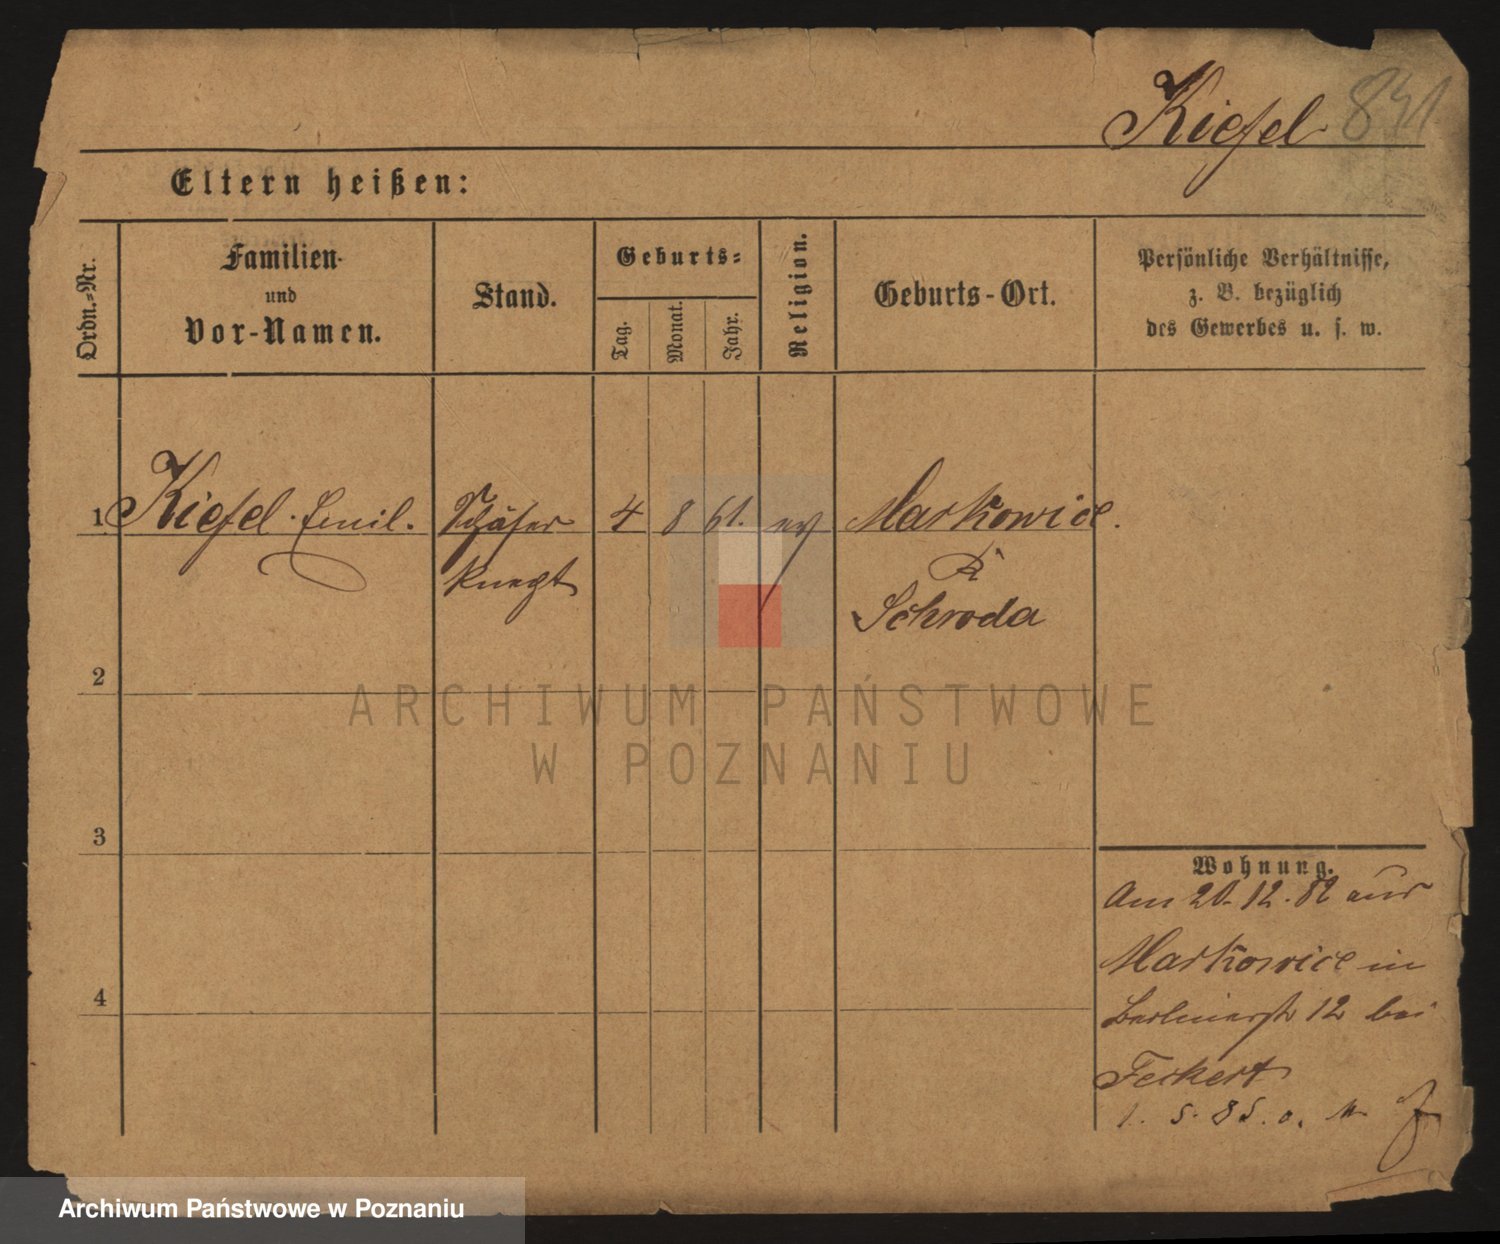 Kiefel 831
Eltern heißen:
Ordn.-Nr.
Familien-
und
Vor-Namen.
Stand.
Geburts-
Tag.
Monat.
Jahr.
Religion.
Geburts-Ort.
Persönliche Verhältnisse,
z. B. bezüglich
des Gewerbes u. s. w.
1 Kiefel Emil. Schäfer 4 8 61. ev Markowice.
knecht
Kr
Schroda
2
ARCHIWUM PAŃSTWOWE
W POZNANIU
3
Wohnung.
Am 20.12.82 aus
Markowice in
Berlinerstr 12 bei
Feckert
1. 5. 85. o.
4
Archiwum Państwowe w Poznaniu